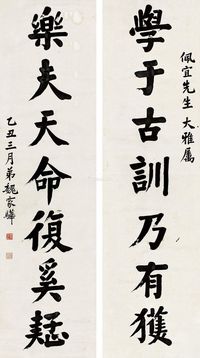 佩宜先生 大雅屬
學于古訓乃有獲
樂夫天命復奚疑
乙丑三月弟魏家驊